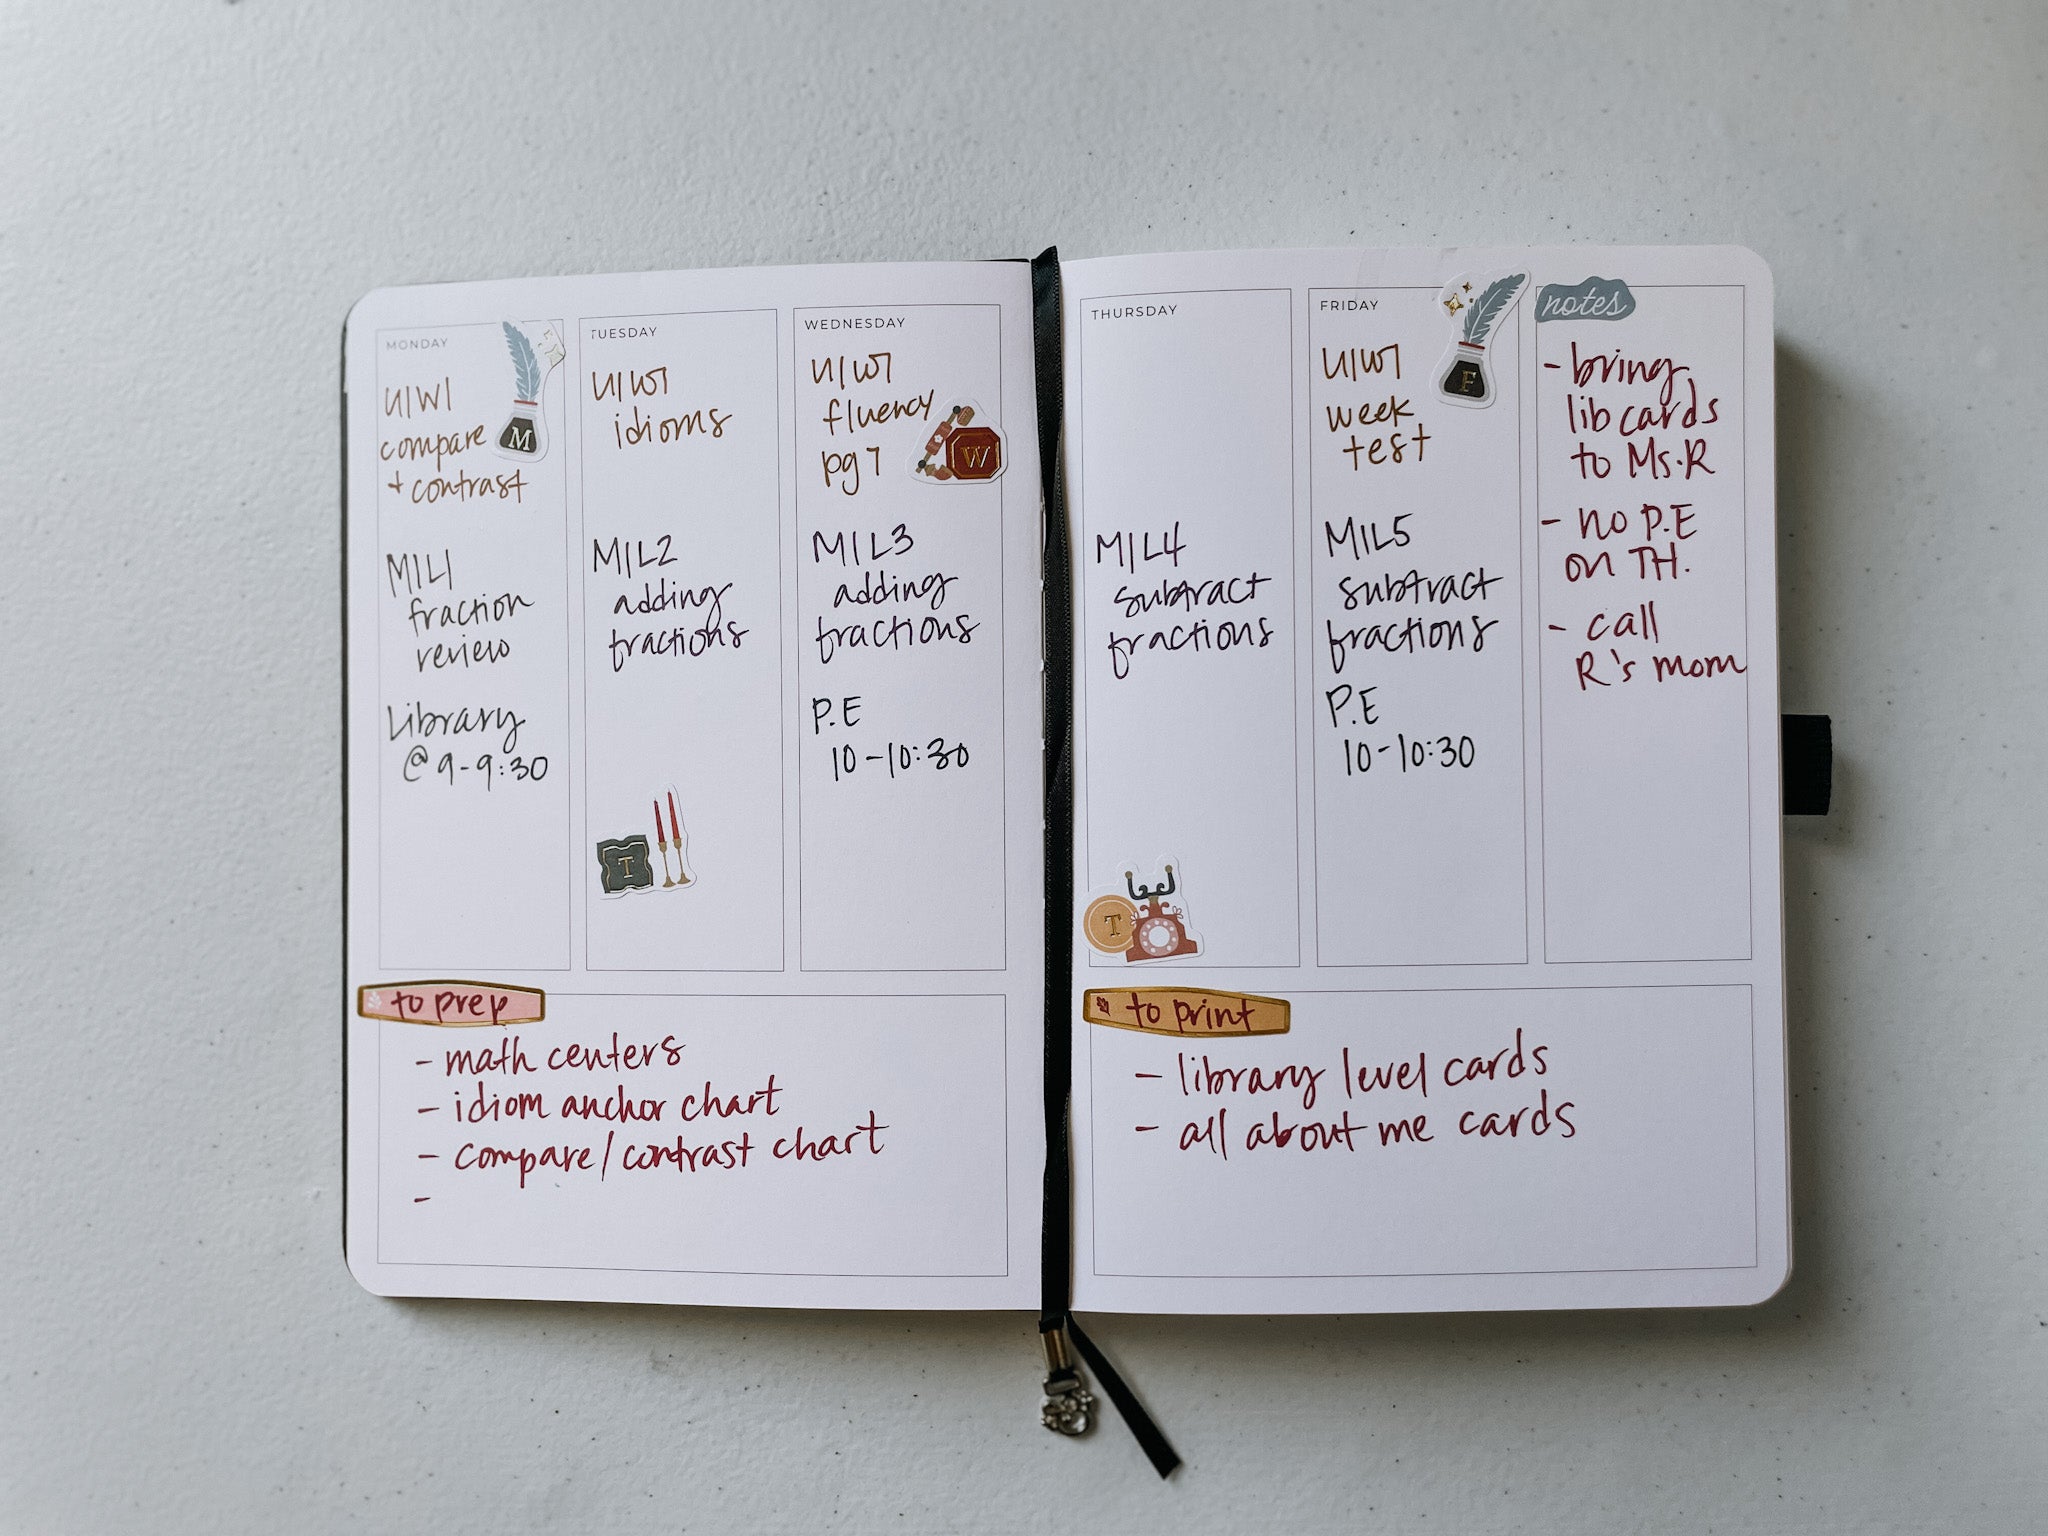 MONDAY
M
U1W1
compare
+ contrast
M1L1
fraction
review
Library
@ 9-9:30
TUESDAY
U1W1
idioms
M1L2
adding
fractions
T
WEDNESDAY
U1W1
fluency
pg 7
W
M1L3
adding
fractions
P.E
10-10:30
to prep
- math centers
- idiom anchor chart
- compare/contrast chart
-
THURSDAY
M1L4
subtract
fractions
T
FRIDAY
F
U1W1
week
test
M1L5
subtract
fractions
P.E
10-10:30
notes
- bring
lib cards
to Ms. R
- no P.E
on TH.
- call
R's mom
to print
- library level cards
- all about me cards